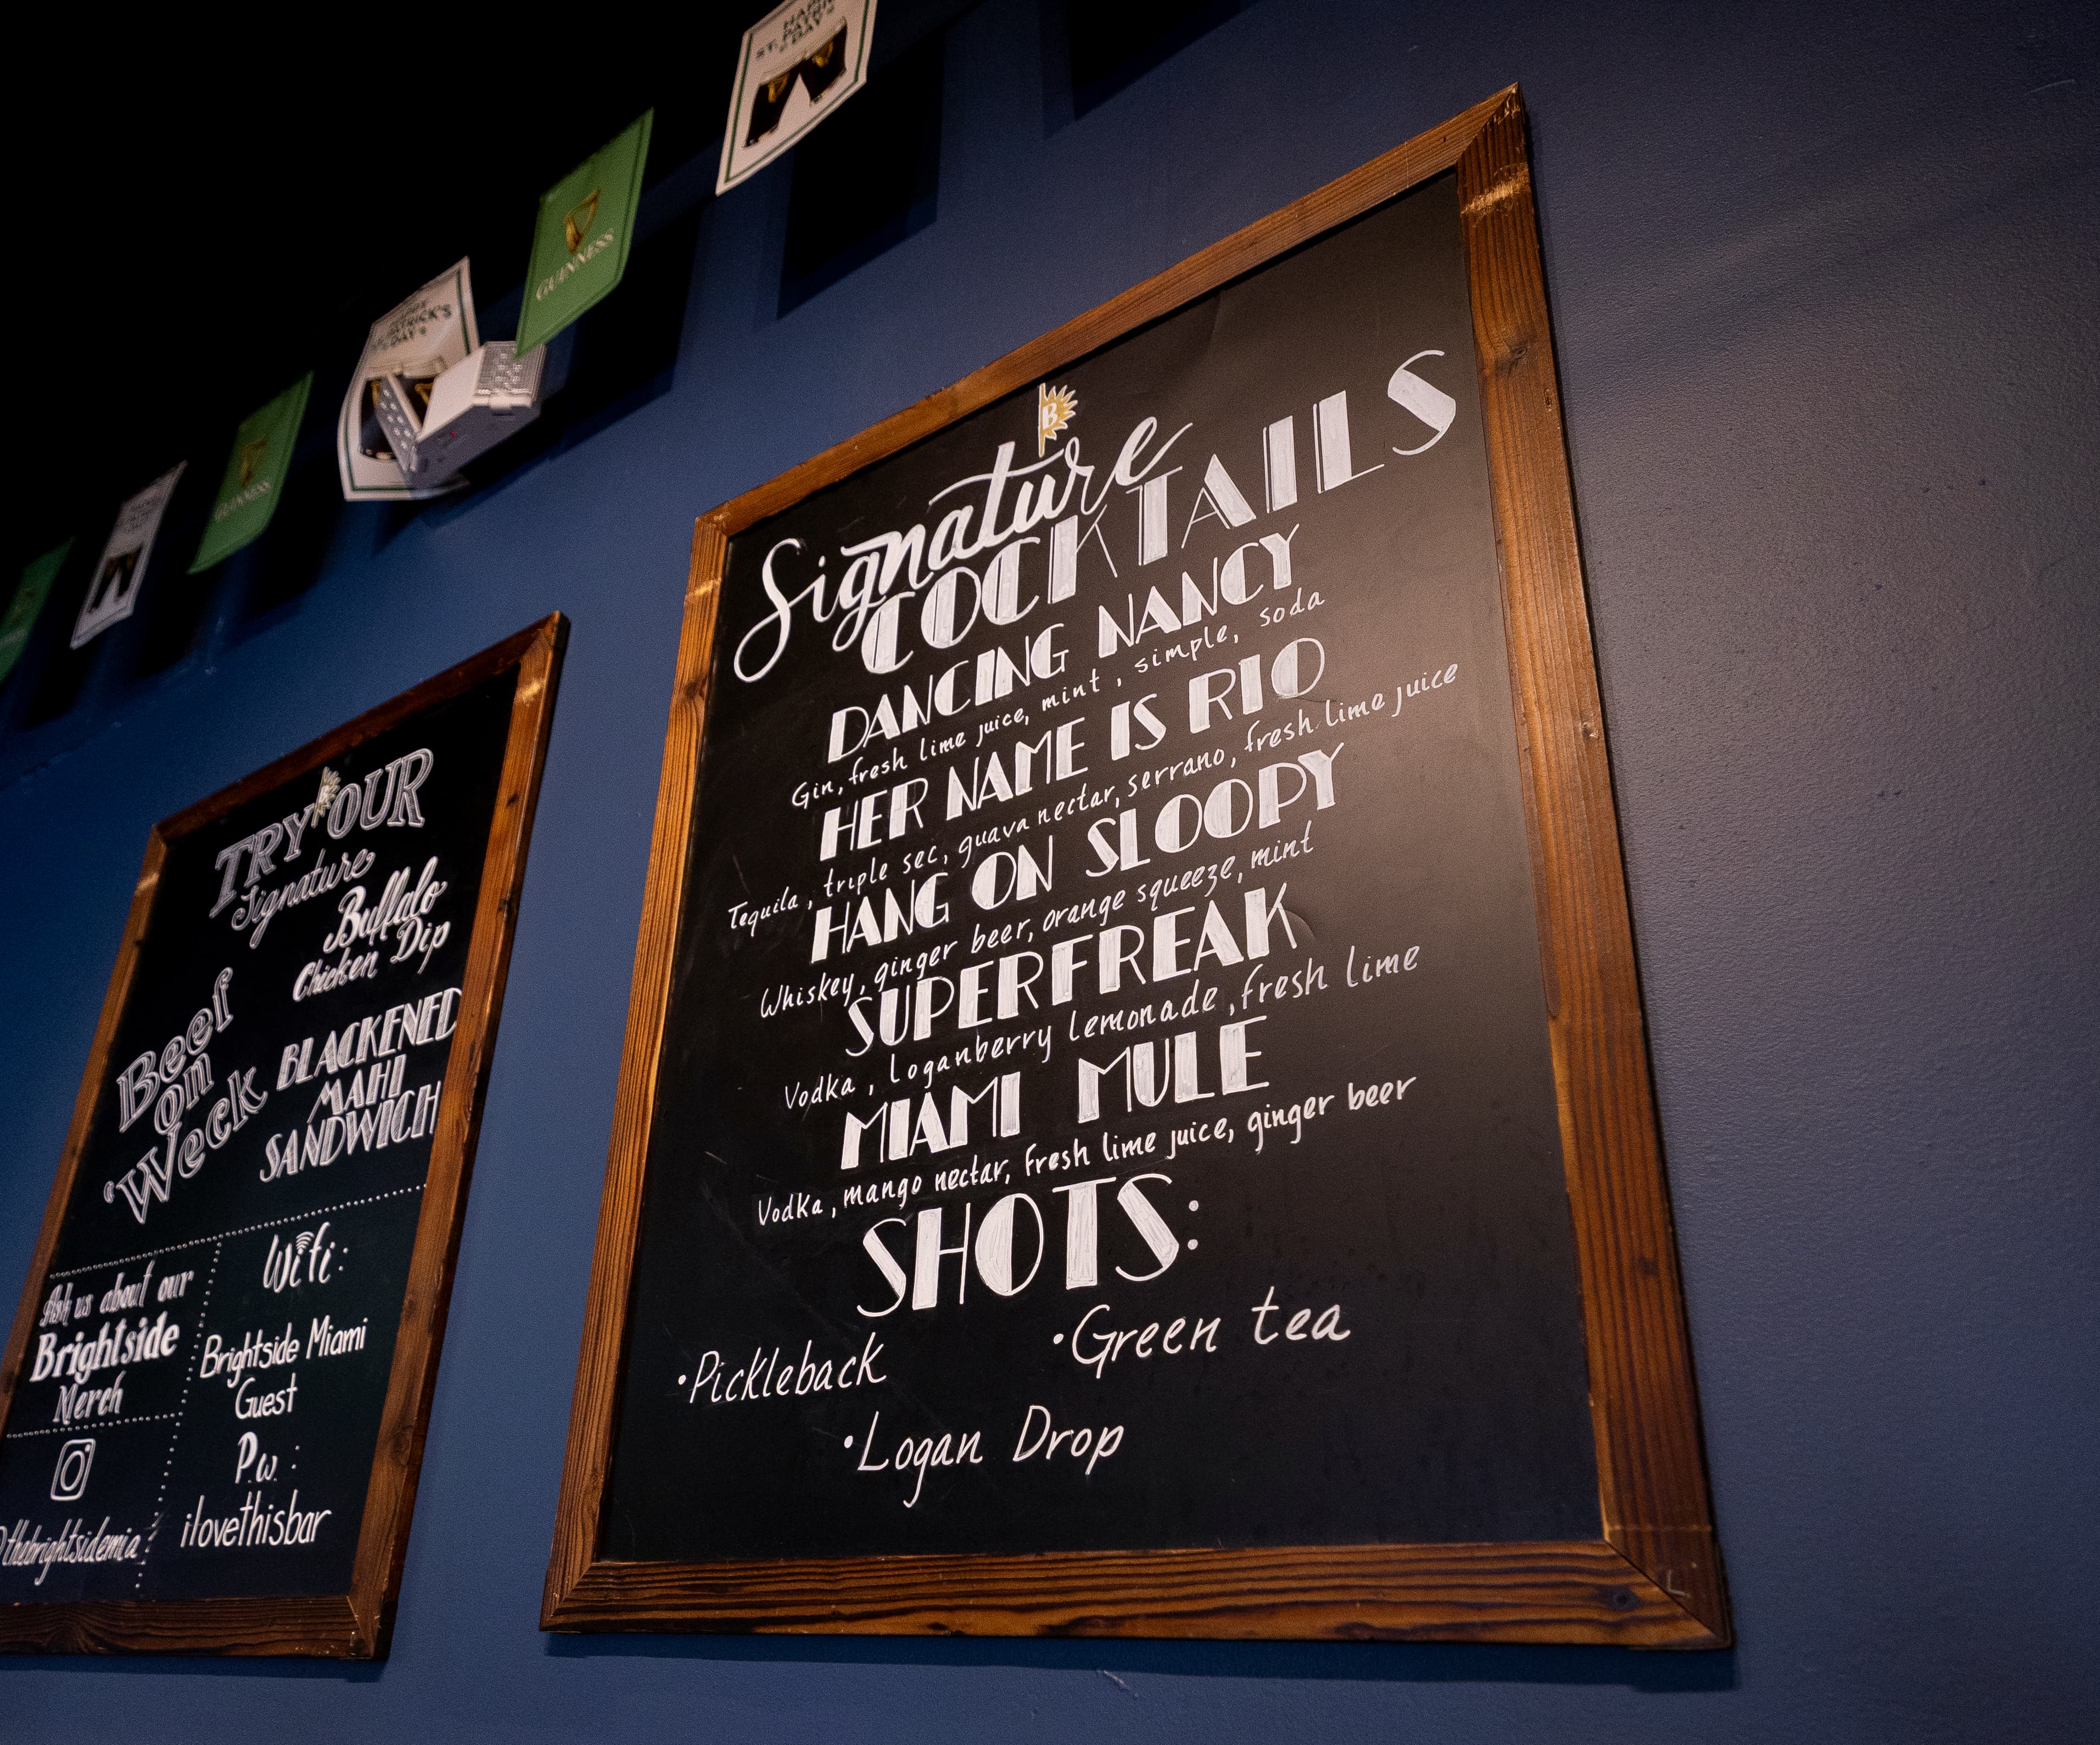 HAPPY
ST. PATRICK'S
DAY
GUINNESS
PATRICK'S
DAY
GUINNESS
B
Signature
COCKTAILS
DANCING NANCY
Gin, fresh lime juice, mint, simple, soda
HER NAME IS RIO
Tequila, triple sec, guava nectar, serrano, fresh lime juice
HANG ON SLOOPY
Whiskey, ginger beer, orange squeeze, mint
SUPERFREAK
Vodka, Loganberry lemonade, fresh lime
MIAMI MULE
Vodka, mango nectar, fresh lime juice, ginger beer
SHOTS:
•Pickleback
•Green tea
•Logan Drop
TRY OUR
Signature
Buffalo
Chicken Dip
Beef
on
Week
BLACKENED
MAHI
SANDWICH
Ask us about our
Brightside
Merch
@thebrightsidemia
Wifi:
Brightside Miami
Guest
Pw:
ilovethisbar